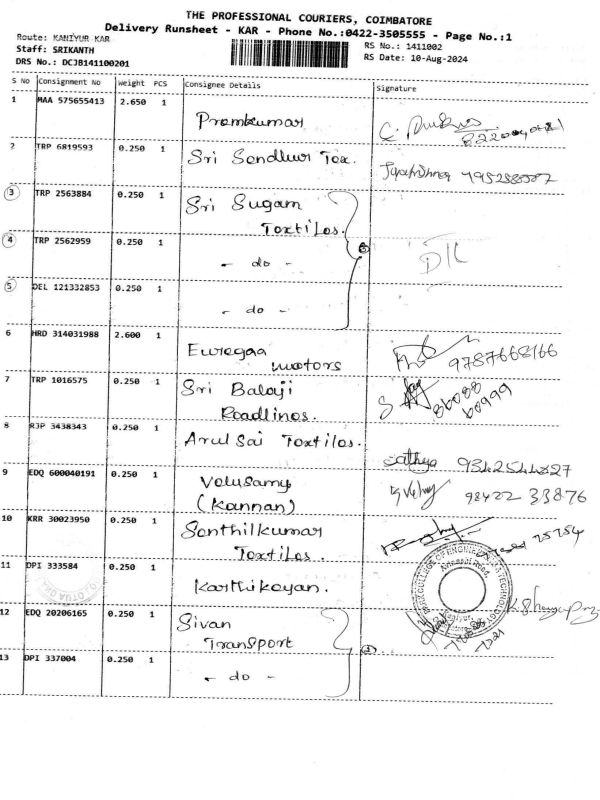 THE PROFESSIONAL COURIERS, COIMBATORE
Delivery Runsheet - KAR - Phone No.:0422-3505555 - Page No.:1
Route: KANIYUR KAR
RS No.: 1411002
Staff: SRIKANTH
RS Date: 10-Aug-2024
DRS No.: DCJB141100201
S No Consignment No Weight PCS Consignee Details Signature
1 MAA 575655413 2.650 1 Premkumar
2 TRP 6819593 0.250 1 Sri Sendhur Tex.
3 TRP 2563884 0.250 1 Sri Sugam
Textiles.
4 TRP 2562959 0.250 1 - do -
5 DEL 121332853 0.250 1 - do -
6 HRD 314031988 2.600 1 Euregaa
motors 9787668166
7 TRP 1016575 0.250 1 Sri Balaji
Roadlines. 86088
60999
8 RJP 3438343 0.250 1 Arul Sai Textiles.
Sathya
9 EDQ 600040191 0.250 1 Velusamy
(Kannan) 98422 33876
10 KRR 30023950 0.250 1 Senthilkumar
Textiles.
11 DPI 333584 0.250 1 Karthikeyan.
12 EDQ 20206165 0.250 1 Sivan
Transport
13 DPI 337004 0.250 1 - do -